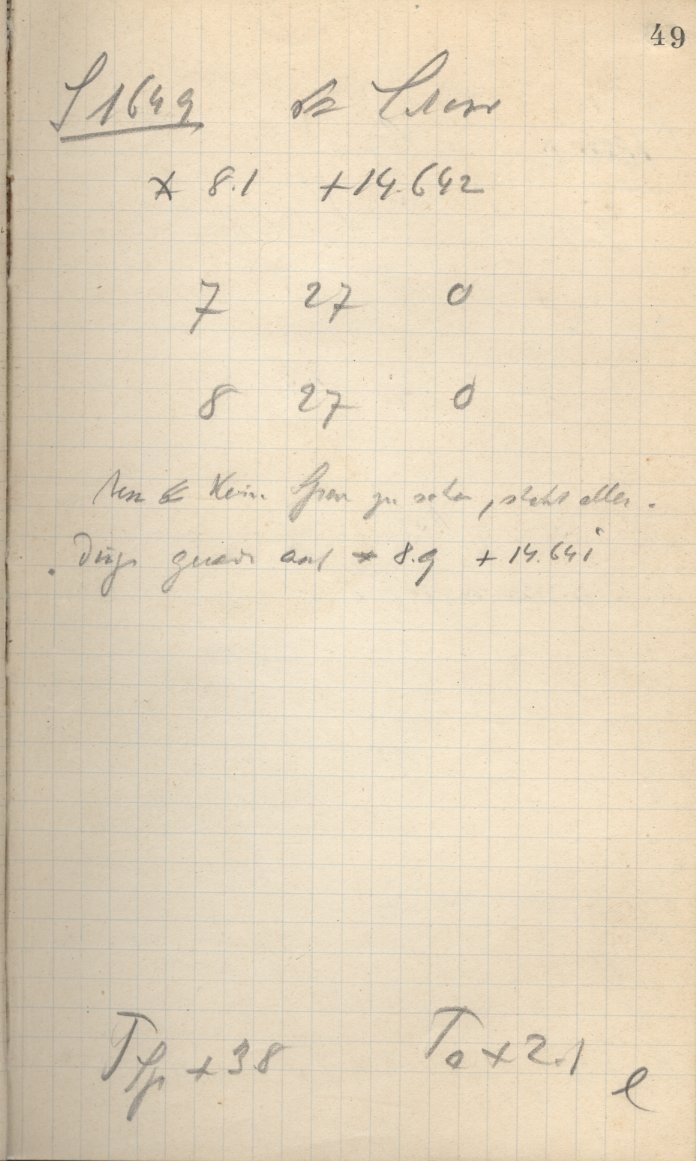 49
S 1649
* 8.1 +14.642
7 27 0
8 27 0
kein zu sehen, steht aller-
dings gerade auf * 8.9 + 14.641
T Sp + 3.8 To + 2.1